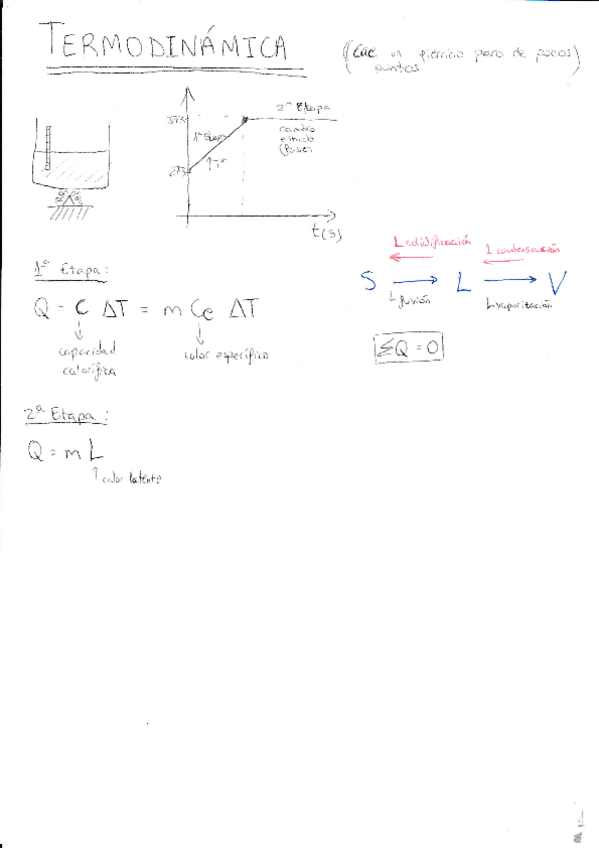 TERMODINÁMICA
(Cae un ejercicio pero de pocos puntos)
373
2ª Etapa
1ª Etapa
cambio
estado
(fase)
↑Tª
273
t(s)
L solidificación
L condensación
S → L → V
L fusión
L vaporización
1ª Etapa:
Q = C ΔT = m Ce ΔT
capacidad
calorífica
calor específico
ΣQ = 0
2ª Etapa:
Q = m L
↑ calor latente
1